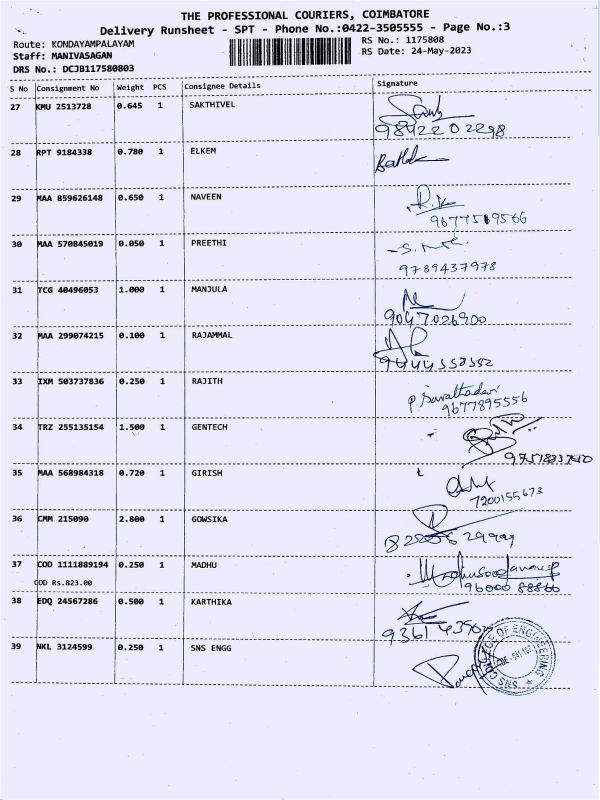 THE PROFESSIONAL COURIERS, COIMBATORE
Delivery Runsheet - SPT - Phone No.:0422-3505555 - Page No.:3
Route: KONDAYAMPALAYAM
RS No.: 1175808
Staff: MANIVASAGAN
RS Date: 24-May-2023
DRS No.: DCJB117580803
S No Consignment No Weight PCS Consignee Details Signature
27 KMU 2513728 0.645 1 SAKTHIVEL
98422 02298
28 RPT 9184338 0.780 1 ELKEM
29 MAA 859626148 0.650 1 NAVEEN
R.K
30 MAA 570845019 0.050 1 PREETHI
9789437978
31 TCG 40496053 1.000 1 MANJULA
9047026900
32 MAA 299074215 0.100 1 RAJAMMAL
33 IXM 503737836 0.250 1 RAJITH
9677895556
34 TRZ 255135154 1.500 1 GENTECH
35 MAA 568984318 0.720 1 GIRISH
7200155673
36 CMM 215090 2.800 1 GOWSIKA
37 COD 1111889194 0.250 1 MADHU
COD Rs.823.00
96000 88860
38 EDQ 24567286 0.500 1 KARTHIKA
39 NKL 3124599 0.250 1 SNS ENGG
SNS COLLEGE OF ENGINEERING